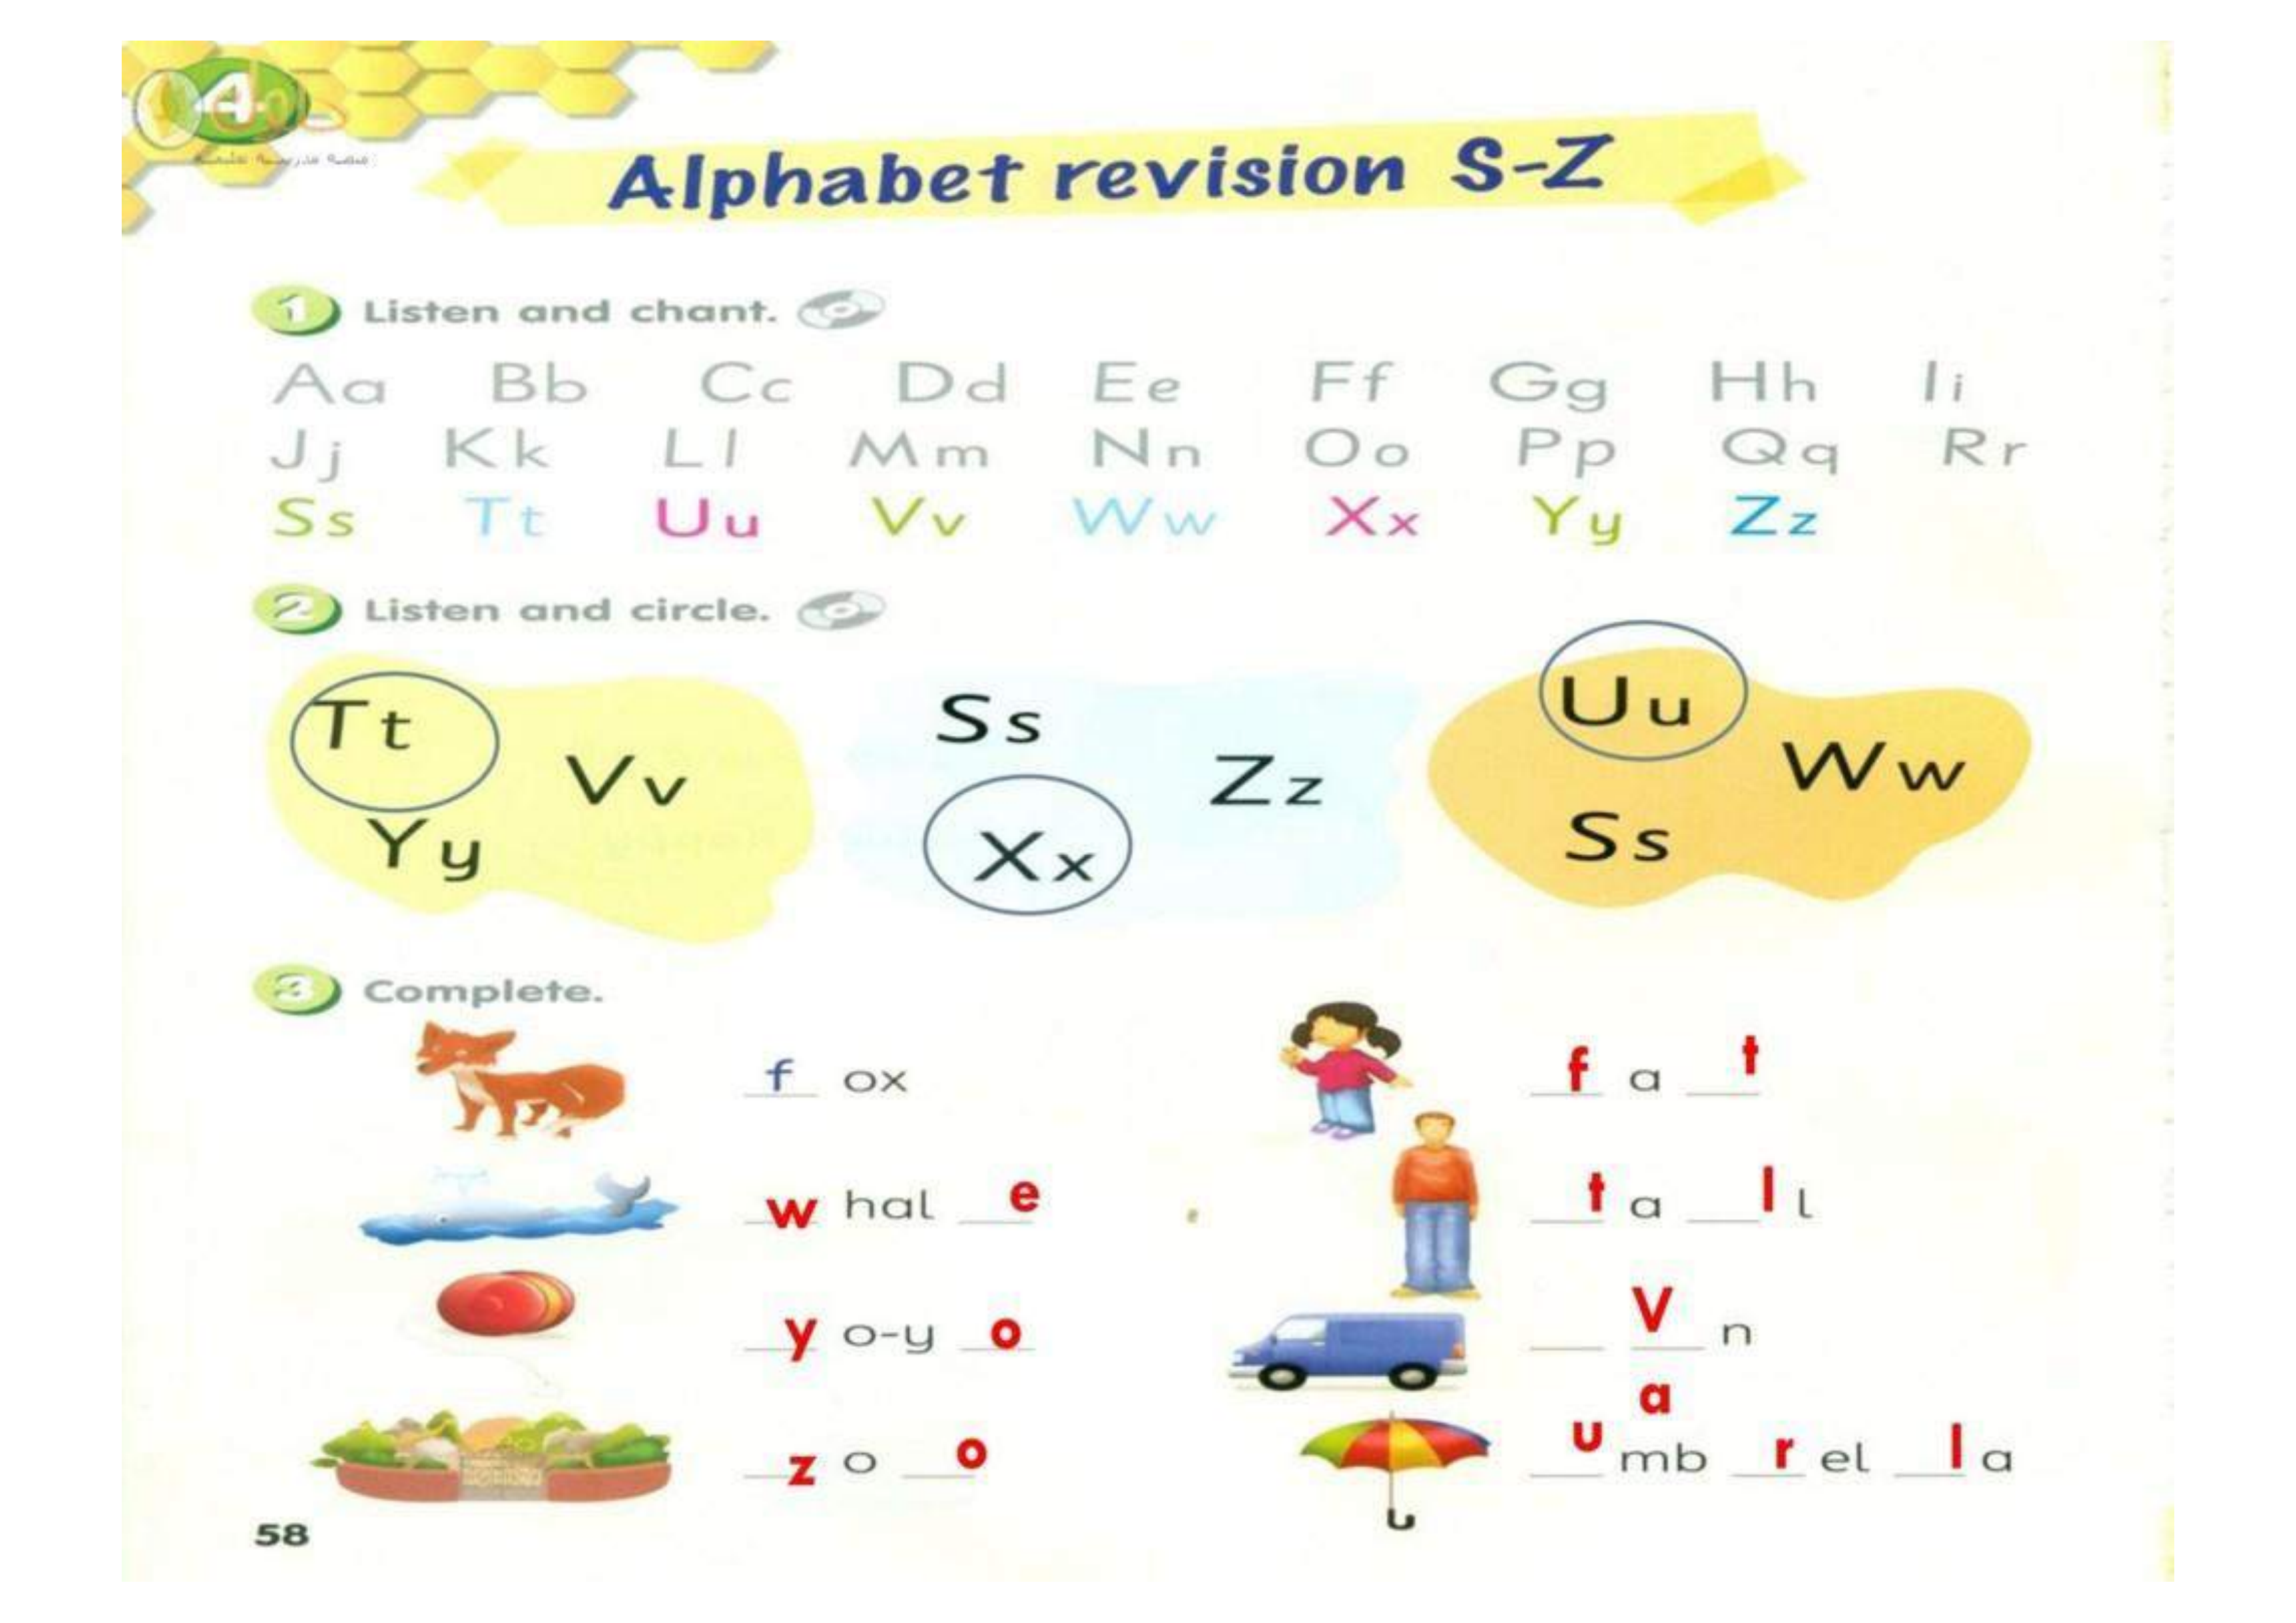 4
منصة مدرسية تعليمية
Alphabet revision S-Z
1 Listen and chant.
Aa Bb Cc Dd Ee Ff Gg Hh Ii
Jj Kk Ll Mm Nn Oo Pp Qq Rr
Ss Tt Uu Vv Ww Xx Yy Zz
2 Listen and circle.
Tt Vv Yy
Ss Zz Xx
Uu Ww Ss
3 Complete.
f ox
f a t
w hal e
t a l l
y o-y o
V n
a
z o o
u mb r el l a
58